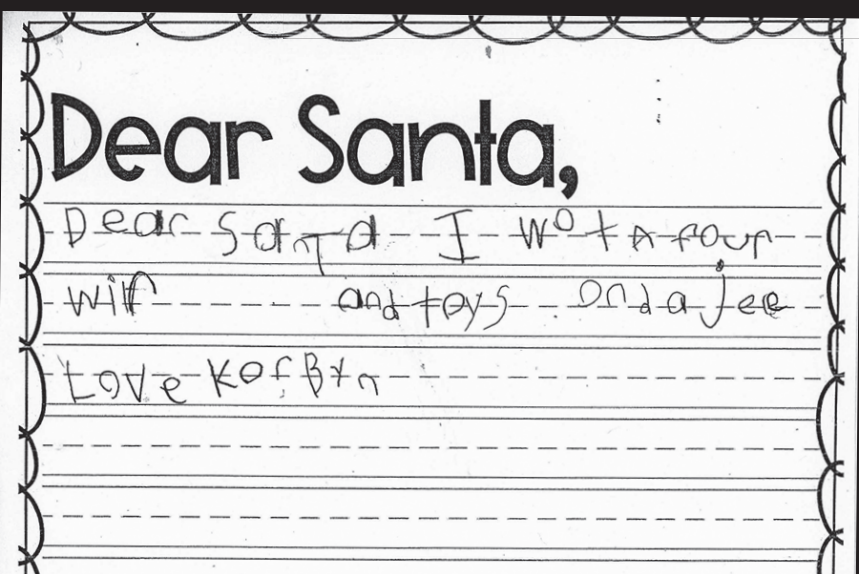 Dear Santa,
Dear Santa I wot A four
wilr and toys ond a jee
Love KorBtn